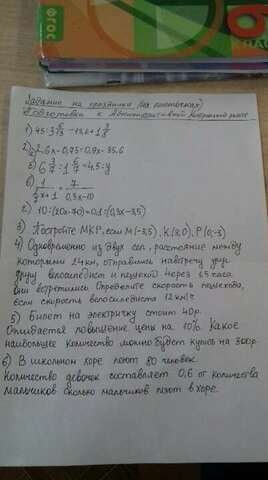 ФГОС
6
КЛАС
Задание на праздники (на листочках)
Подготовка к Административной контрольной работе
1) 45:3 6/13 - 13,6 + 1 3/8
2) а) 2,6x - 0,75 = 0,9x - 35,6
б) 6 3/7 : 1 6/7 = 4,5 : y
в) 1/(x+1) = 7/(0,3x-10)
2) 10:(20x-70)=0,1:(0,3x-3,5)
3) Постройте MKP, если M(-3,5), K(3,0), P(0,-5)
4) Одновременно из двух сел, расстояние между
которыми 24 км, отправились навстречу друг
другу велосипедист и пешеход. Через 1,5 часа
они встретились. Определите скорость пешехода,
если скорость велосипедиста 12 км/ч
5) Билет на электричку стоит 40р.
Ожидается повышение цены на 10%. Какое
наибольшее количество можно будет купить на 300р.
6) В школьном хоре поют 80 человек.
Количество девочек составляет 0,6 от количества
мальчиков. Сколько мальчиков поют в хоре.